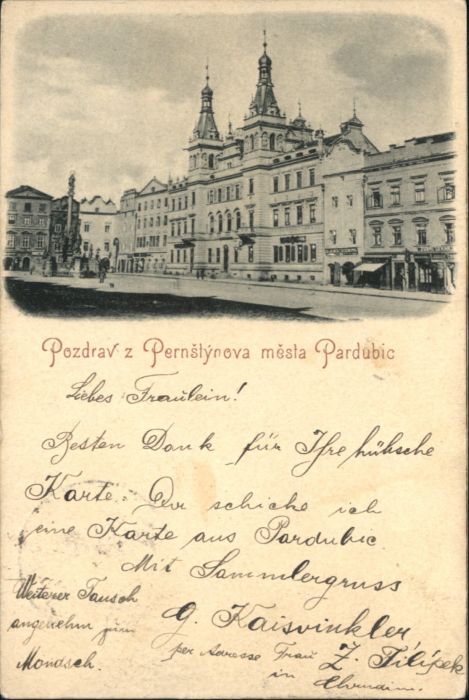 Pozdrav z Pernštýnova města Pardubic
Liebes Fräulein!
Besten Dank für Ihre hübsche
Karte. Der schicke ich
eine Karte aus Pardubic
Mit Sammlergruss
Weiterer Tausch
angenehm
G. Kaisvinkler
per Adresse Frau Z. Filípek
in Chrudim.